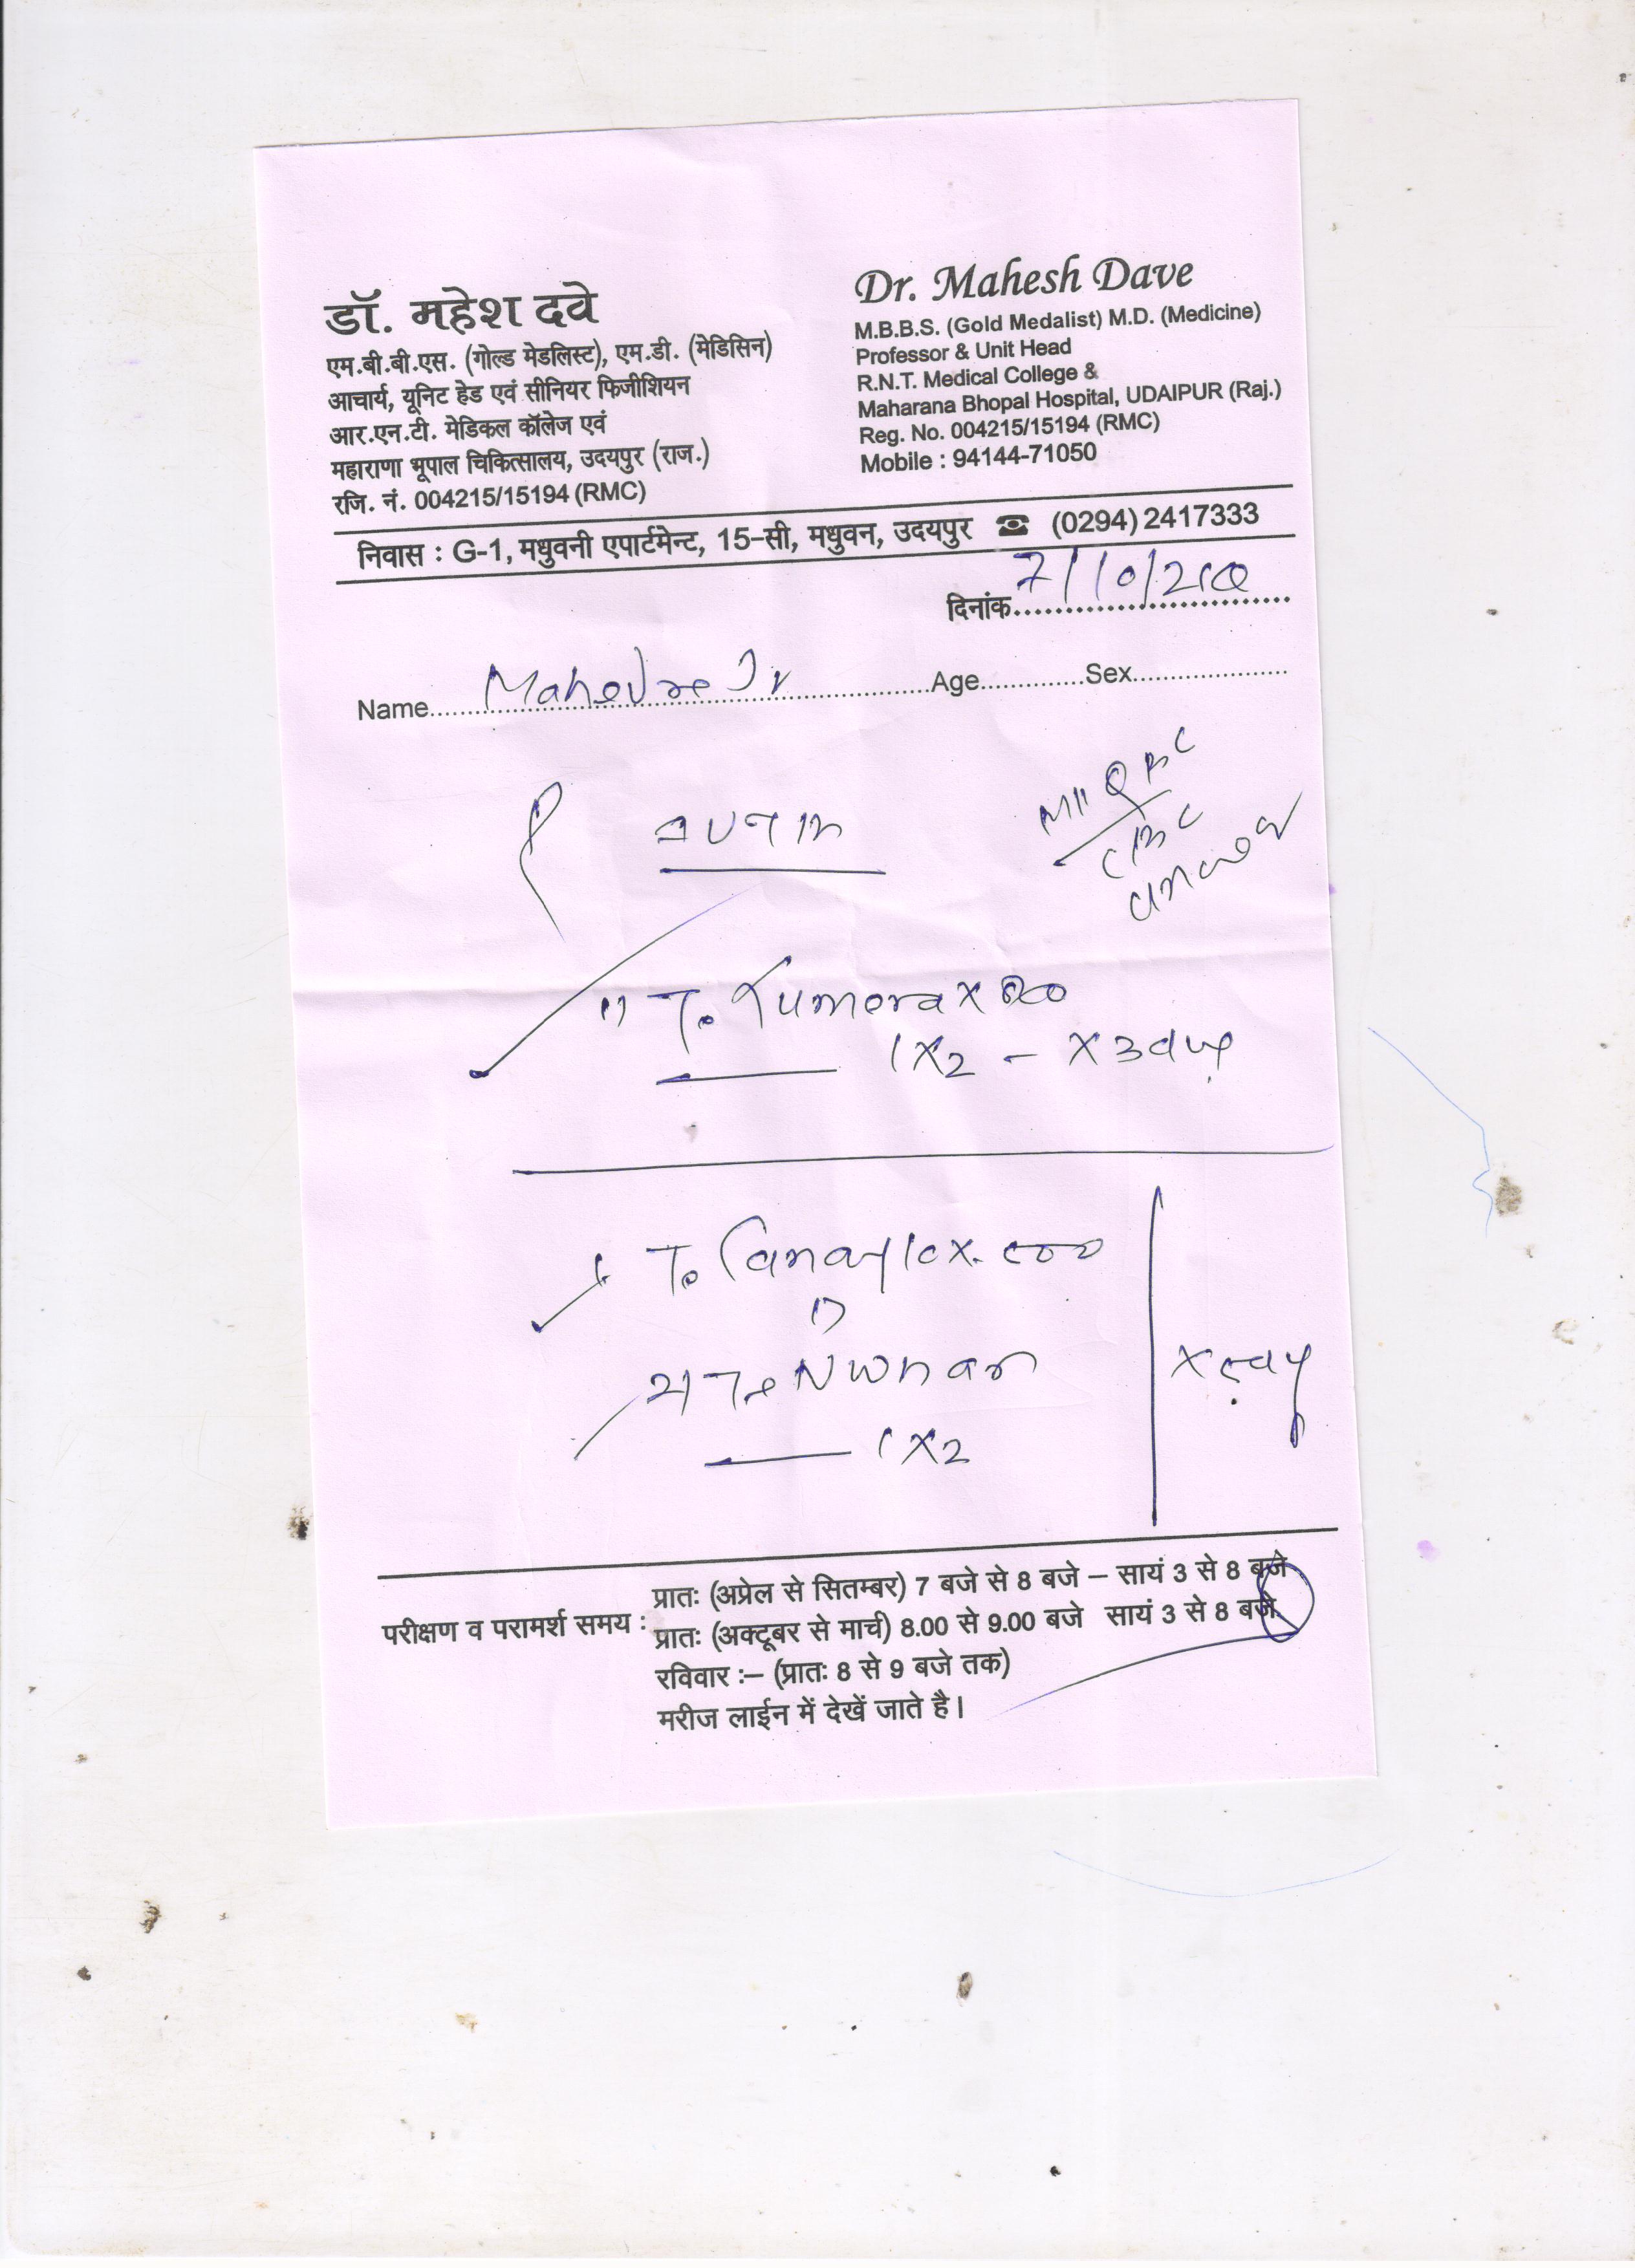 डॉ. महेश दवे
एम.बी.बी.एस. (गोल्ड मेडलिस्ट), एम.डी. (मेडिसिन)
आचार्य, यूनिट हेड एवं सीनियर फिजीशियन
आर.एन.टी. मेडिकल कॉलेज एवं
महाराणा भूपाल चिकित्सालय, उदयपुर (राज.)
रजि. नं. 004215/15194 (RMC)
Dr. Mahesh Dave
M.B.B.S. (Gold Medalist) M.D. (Medicine)
Professor & Unit Head
R.N.T. Medical College &
Maharana Bhopal Hospital, UDAIPUR (Raj.)
Reg. No. 004215/15194 (RMC)
Mobile : 94144-71050
निवास : G-1, मधुवनी एपार्टमेन्ट, 15-सी, मधुवन, उदयपुर ☎ (0294) 2417333
दिनांक 7/10/
Name Age Sex
CBC
1) T.
1x2 - x3
T.
2) T.
1x2
xray
परीक्षण व परामर्श समय :
प्रातः (अप्रेल से सितम्बर) 7 बजे से 8 बजे – सायं 3 से 8 बजे
प्रातः (अक्टूबर से मार्च) 8.00 से 9.00 बजे सायं 3 से 8 बजे
रविवार :– (प्रातः 8 से 9 बजे तक)
मरीज लाईन में देखें जाते है।